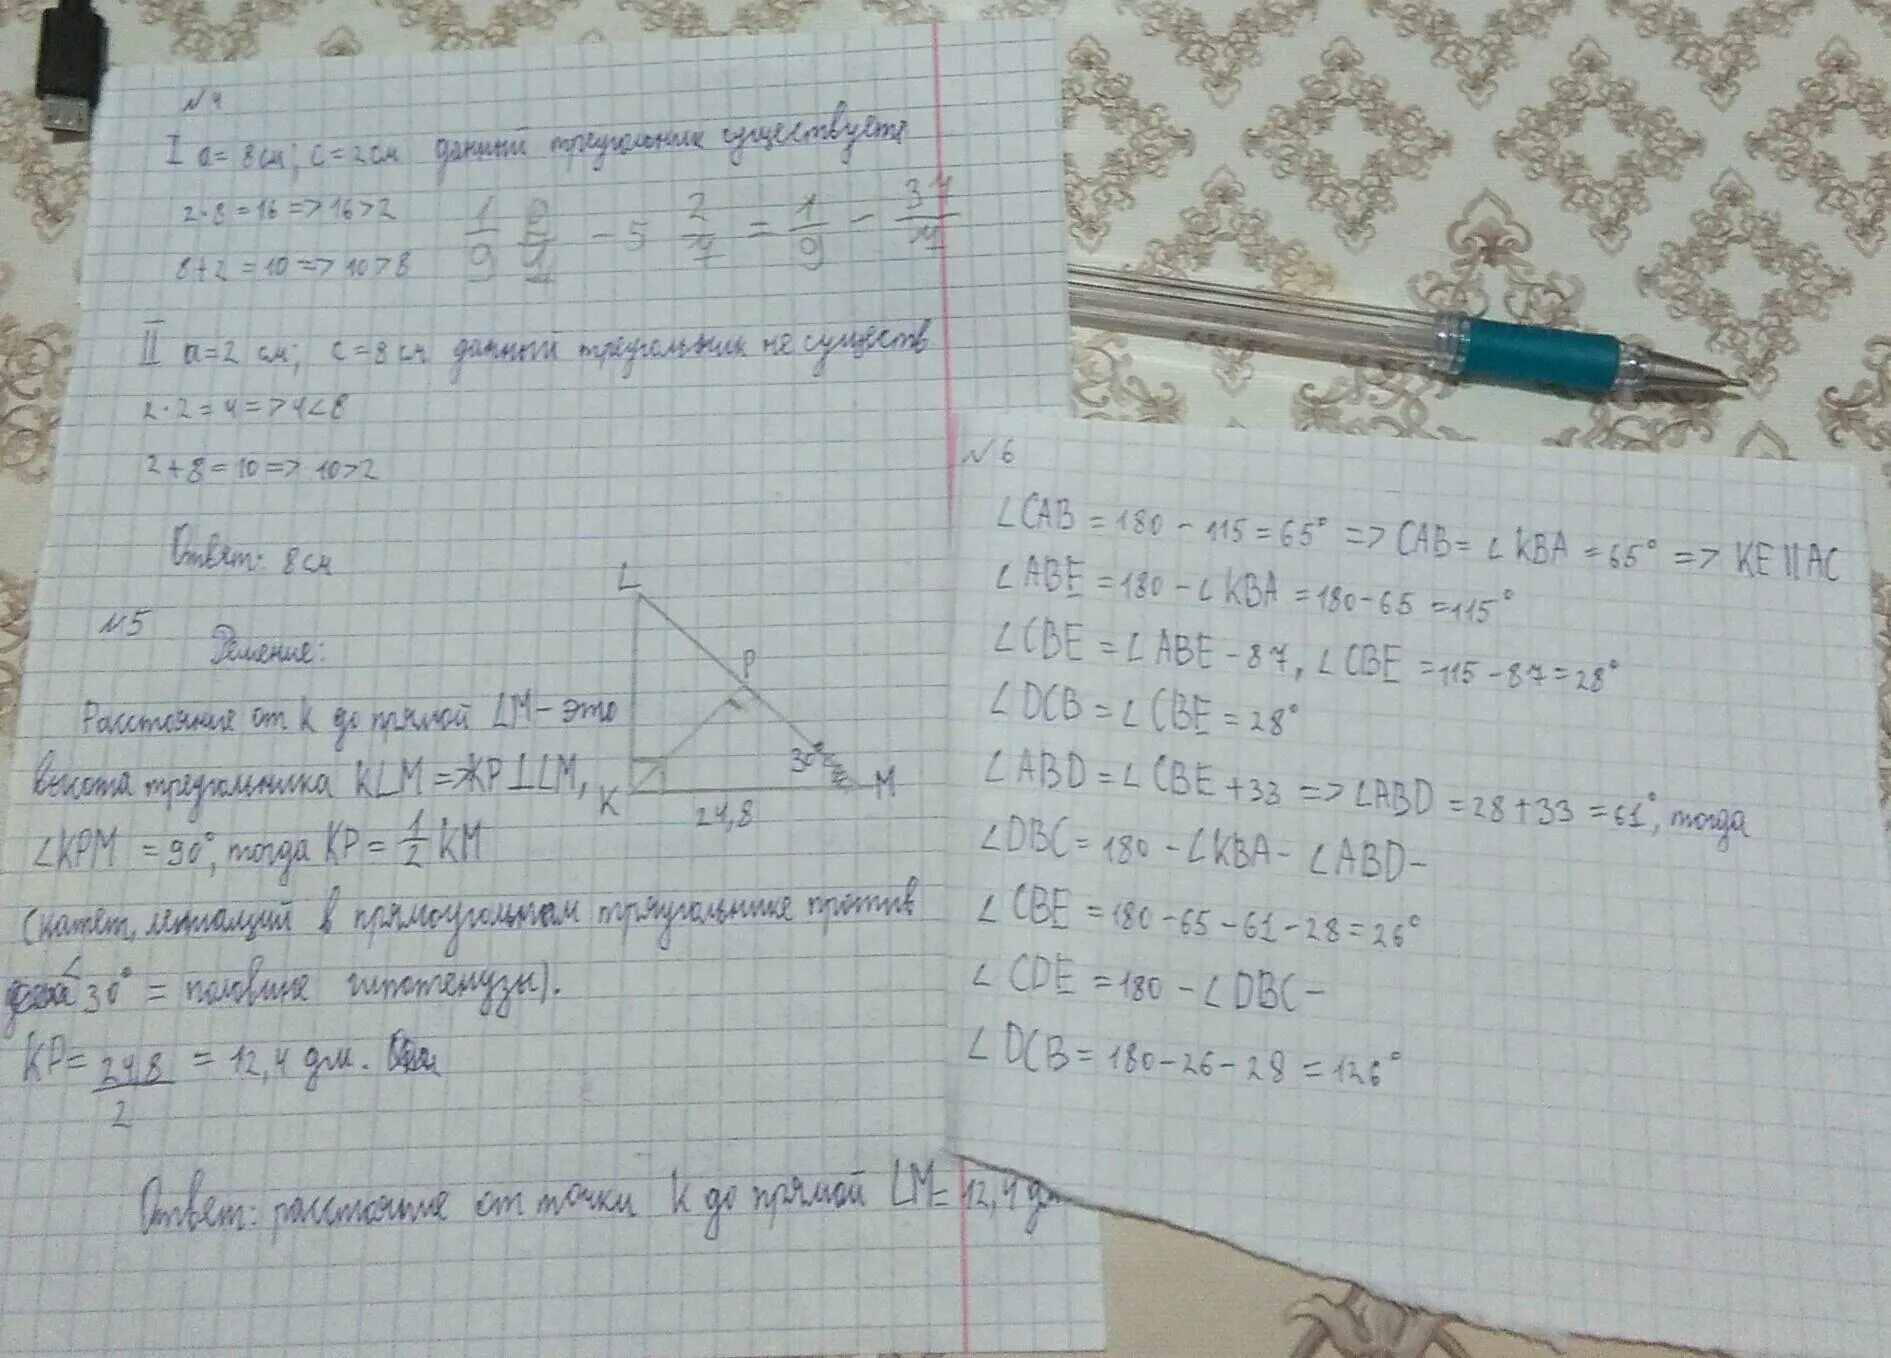 №4
I a = 8см; c = 2см данный треугольник существует
2·8=16 => 16>2
8+2=10 => 10>8
1/9 - 5 2/7 = 1/9 - 37/7
II a=2 см; c=8см данный треугольник не существ
2·2=4=>4<8
2+8=10=>10>2
Ответ: 8см
№5
Решение:
Расстояние от K до прямой LM - это
высота треугольника KLM => KP⊥LM,
∠KPM = 90°, тогда KP = 1/2 KM
(катет, лежащий в прямоугольном треугольнике против
∠ 30° = половине гипотенузы).
KP = 24,8/2 = 12,4 дм.
Ответ: расстояние от точки K до прямой LM = 12,4 дм
L
P
30°
K
M
24,8
№6
∠CAB = 180 - 115 = 65° => CAB = ∠KBA = 65° => KE || AC
∠ABE = 180 - ∠KBA = 180-65 = 115°
∠CBE = ∠ABE - 87, ∠CBE = 115-87=28°
∠DCB = ∠CBE = 28°
∠ABD = ∠CBE + 33 => ∠ABD = 28+33 = 61°, тогда
∠DBC = 180 - ∠KBA - ∠ABD -
∠CBE = 180-65-61-28 = 26°
∠CDE = 180 - ∠DBC -
∠DCB = 180-26-28 = 126°